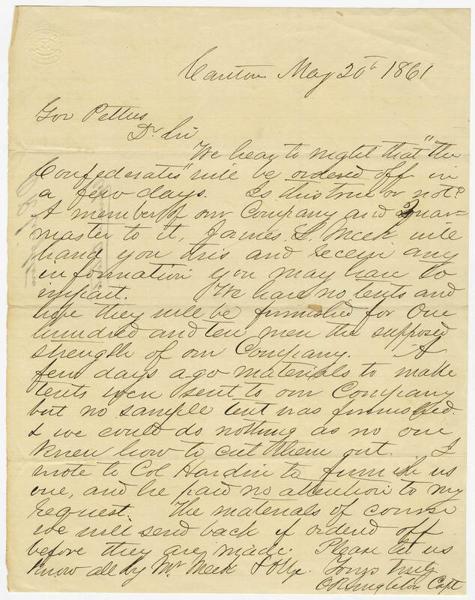 Canton May 20th 1861
Gov Pettus
Dr Sir
We hear to night that "the
Confederates" will be ordered off in
a few days. Is this true or not?
A member of our Company and Quar-
master to it, James L. Meek will
hand you this and receive any
information you may have to
impart. We have no tents and
hope they will be furnished for One
hundred and ten men the supposed
strength of our Company. A
few days ago materials to make
tents were sent to our Company
but no sample tent was furnished.
& we could do nothing as no one
knew how to cut them out. I
wrote to Col Hardin to furnish us
one, and he paid no attention to my
request. The materials of course
we will send back if ordered off
before they are made. Please let us
know all by Mr Meek & Oblige Yours truly
O R Singleton Capt